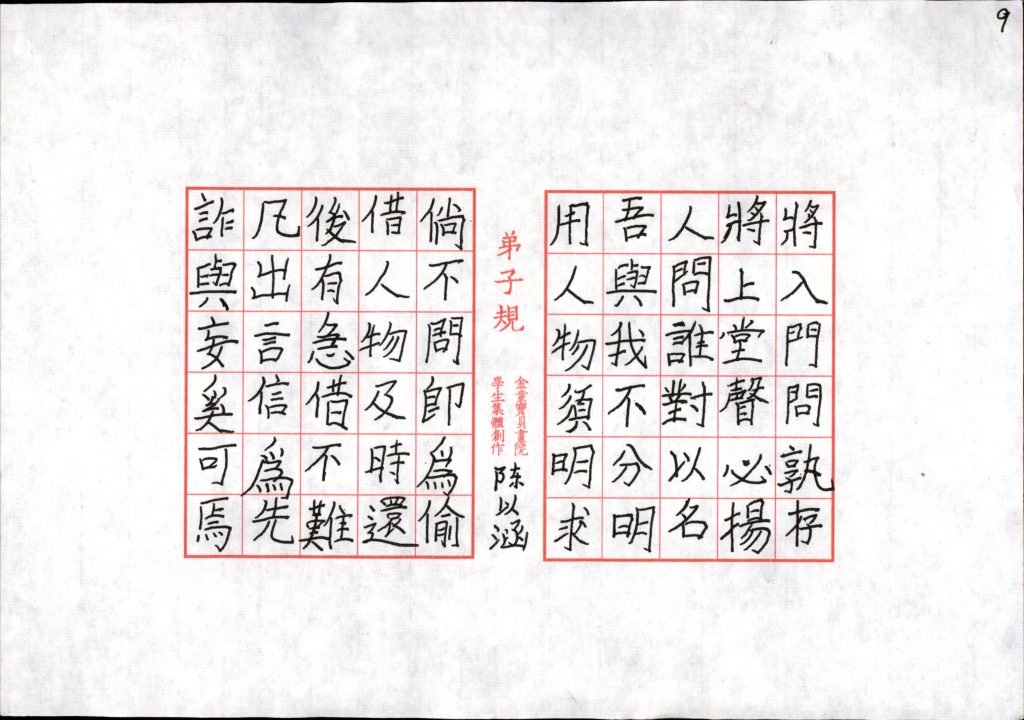 9
將入門問孰存
將上堂聲必揚
人問誰對以名
吾與我不分明
用人物須明求
弟子規
金童寶貝畫院
學生集體創作
陈以涵
倘不問即爲偷
借人物及時還
後有急借不難
凡出言信爲先
詐與妄奚可焉